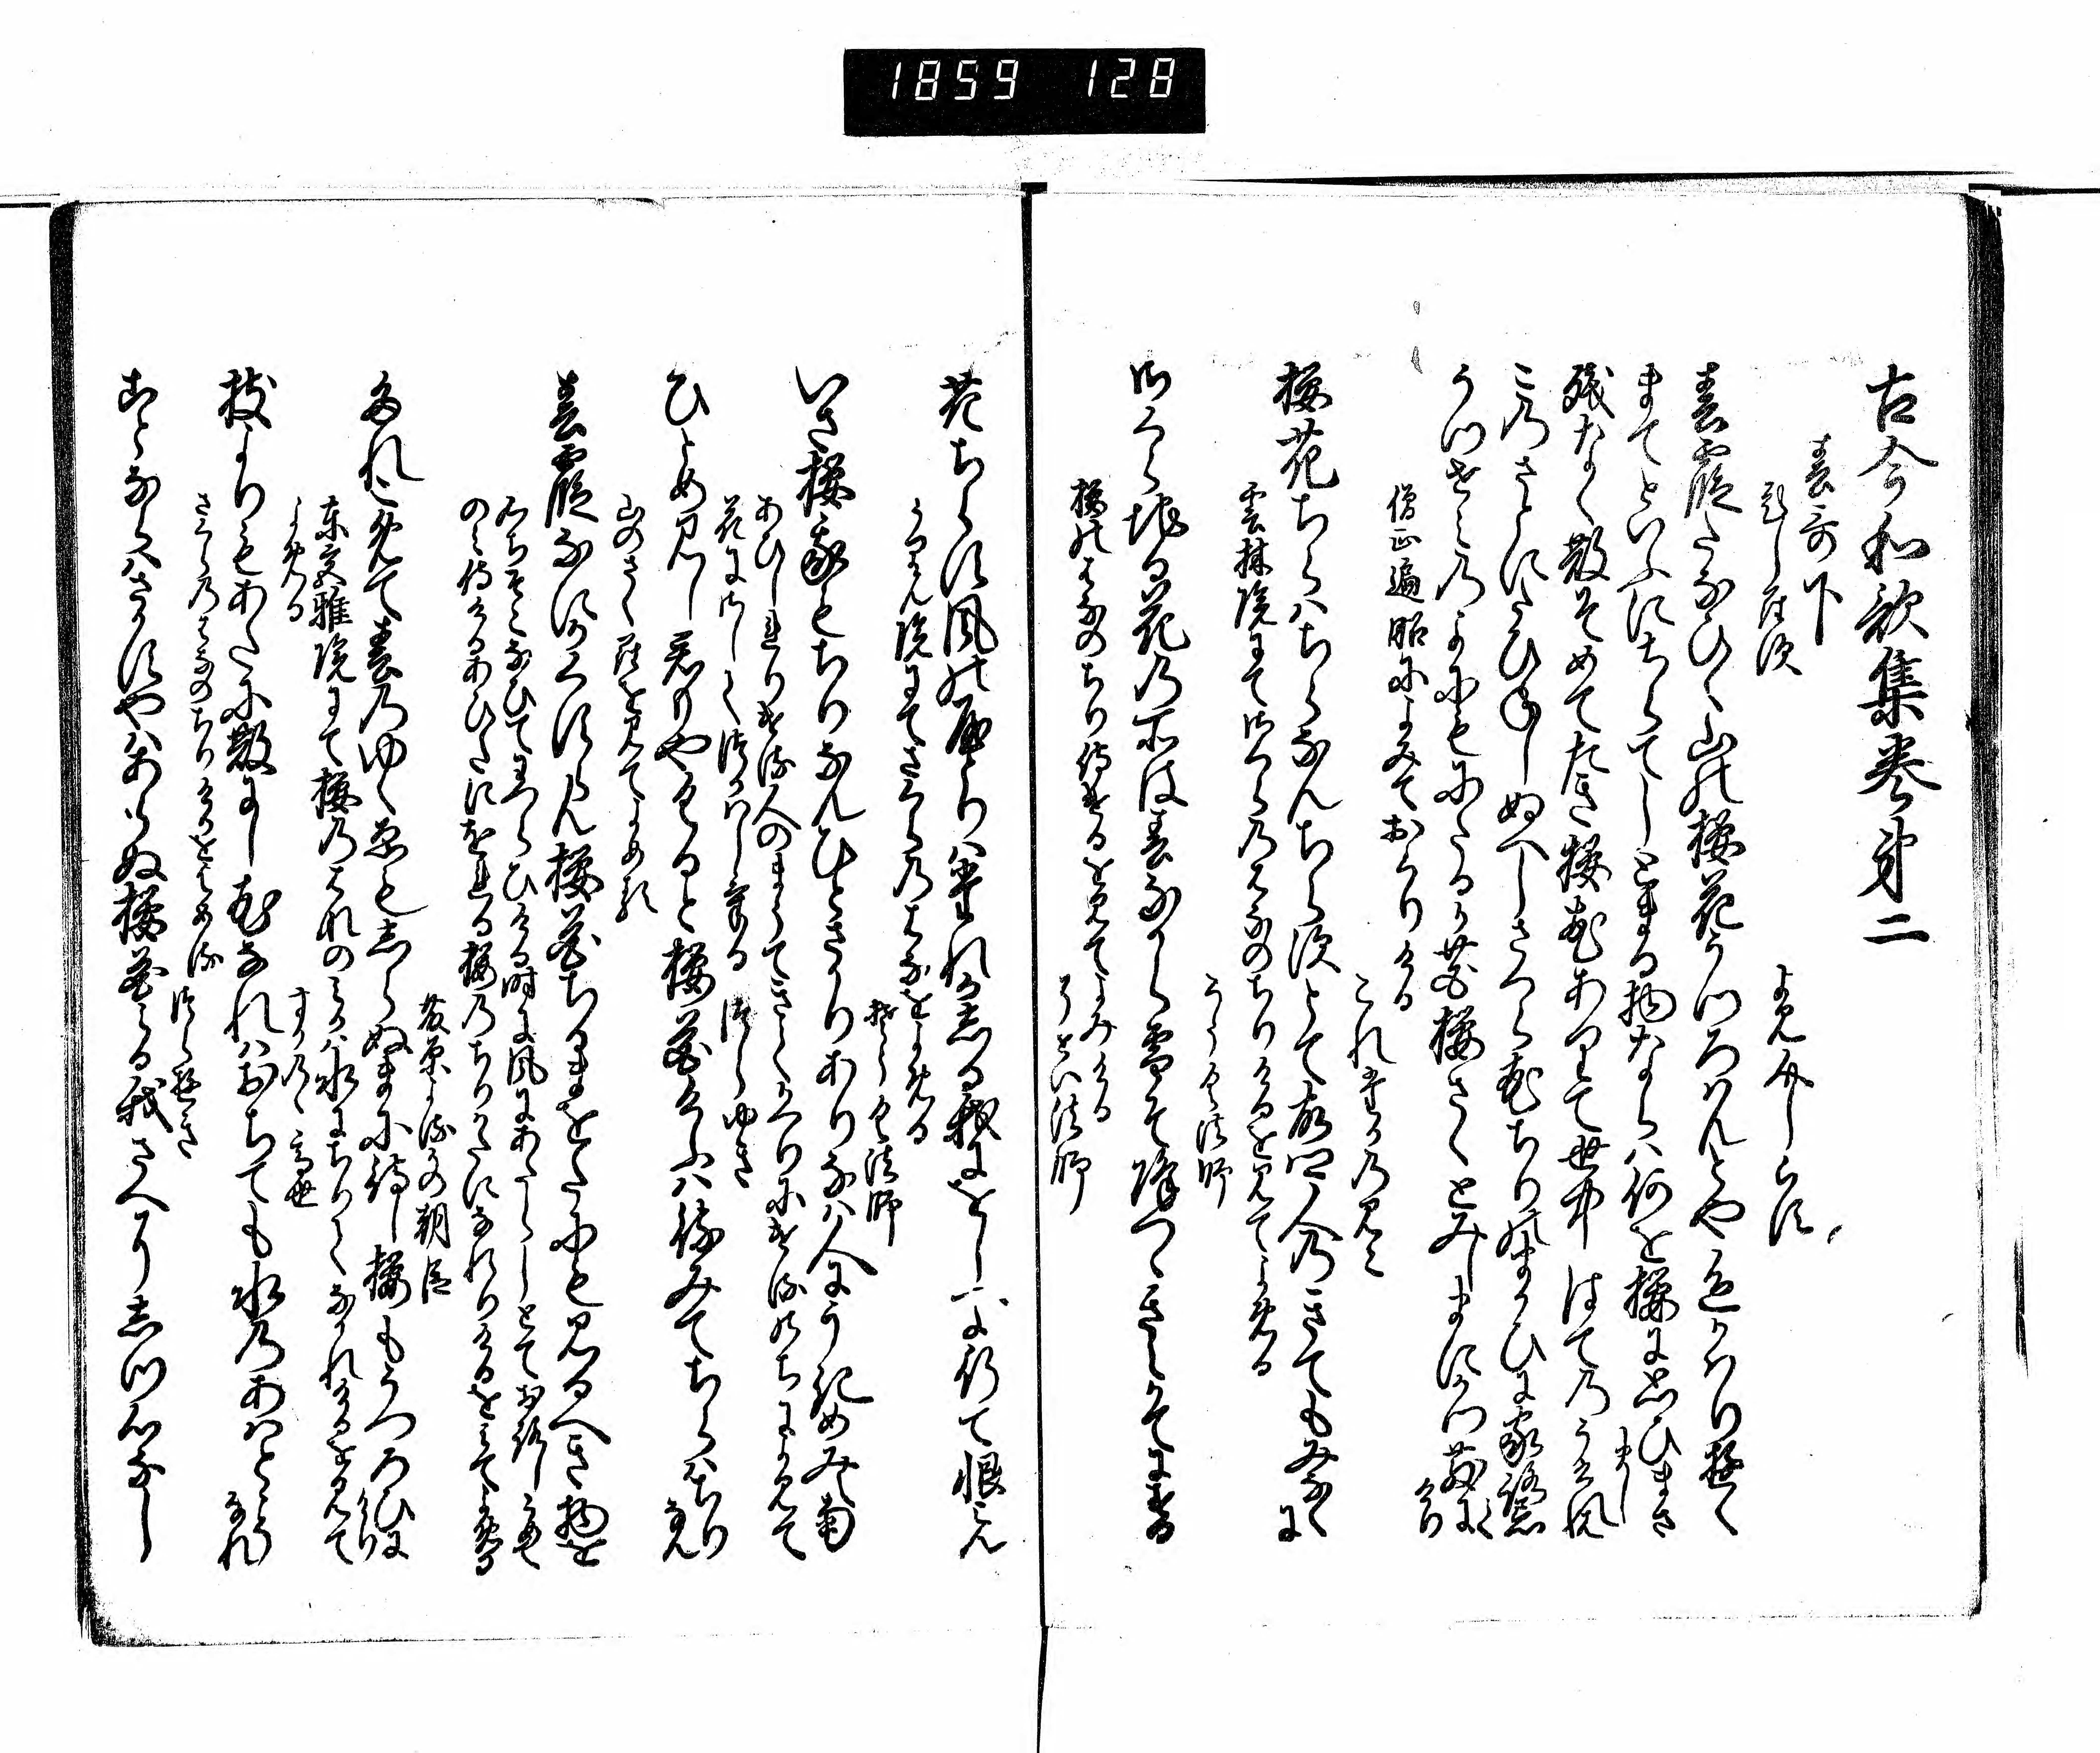 1859 128
古今和歌集巻第二
春哥下
題しらす
よみ人しらす
春霞たなひく山の桜花うつろはんとや色かはり行
まてといふにちらてしとまる物ならは何を桜に思ひまさまし
残なく散そめてたき桜花ありて世中はてのうけれは
このさとにたひねしぬへしさくら花ちりのまかひに家路忘て
うつせみのよにもにたるか花桜さくとみしまにかつ散にけり
僧正遍昭によみておくりける
これたかのみこ
桜花ちらはちらなんちらすとて故郷人のきてもみなくに
雲林院にてさくらの花のちりけるを見てよめる
そうく法師
さくらちる花の所は春なから雪そ降つゝきえかてにする
桜の花のちり侍けるを見てよみける
そせい法師
花ちらす風のやとりは誰かしる我にをしへよ行て恨みん
うりん院にてさくらの花をよめる
そうく法師
いさ桜我もちりなんひとさかりありなは人にうきめみえ南
あひしれりける人のまうてきてかへりにけるのちによみて
花にさしてつかはしける
つらゆき
ひとめ見し君もやくると桜花けふは待みてちらはちらなん
山のさくらを見てよめる
春霞なにかくすらん桜花ちるまをたにも見るへき物を
心ちそこなひてわつらひける時に風にあたらしとておろしこめて
のみ侍けるあひたにをれる桜のちりかたになれりけるをみてよめる
藤原よるかの朝臣
たれこめて春のゆくゑもしらぬまに待し桜もうつろひにけり
東宮雅院にて桜の花のみかは水にちりてなかれけるを見て
よめる
すかのゝ高世
枝よりもあたに散にし花なれはおちても水のあはとこそなれ
さくらの花のちりけるをよめる
つらゆき
ことならはさかすやはあらぬ桜花みる我さへにしつ心なし